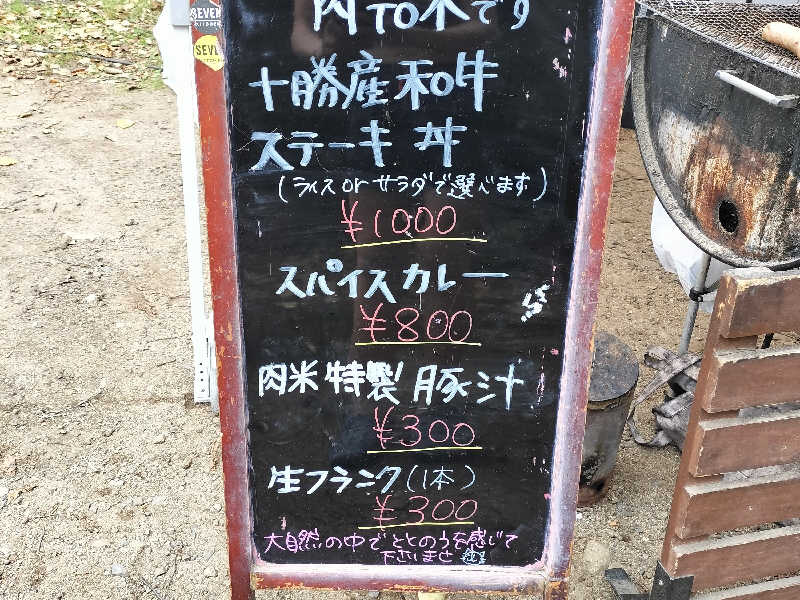 SEVEN
SEV
肉TO米です
十勝産和牛
ステーキ丼
(ライスorサラダで選べます)
¥1000
スパイスカレー
¥800
肉米特製豚汁
¥300
生フランク(1本)
¥300
大自然の中でととのうを感じて
下さいませ